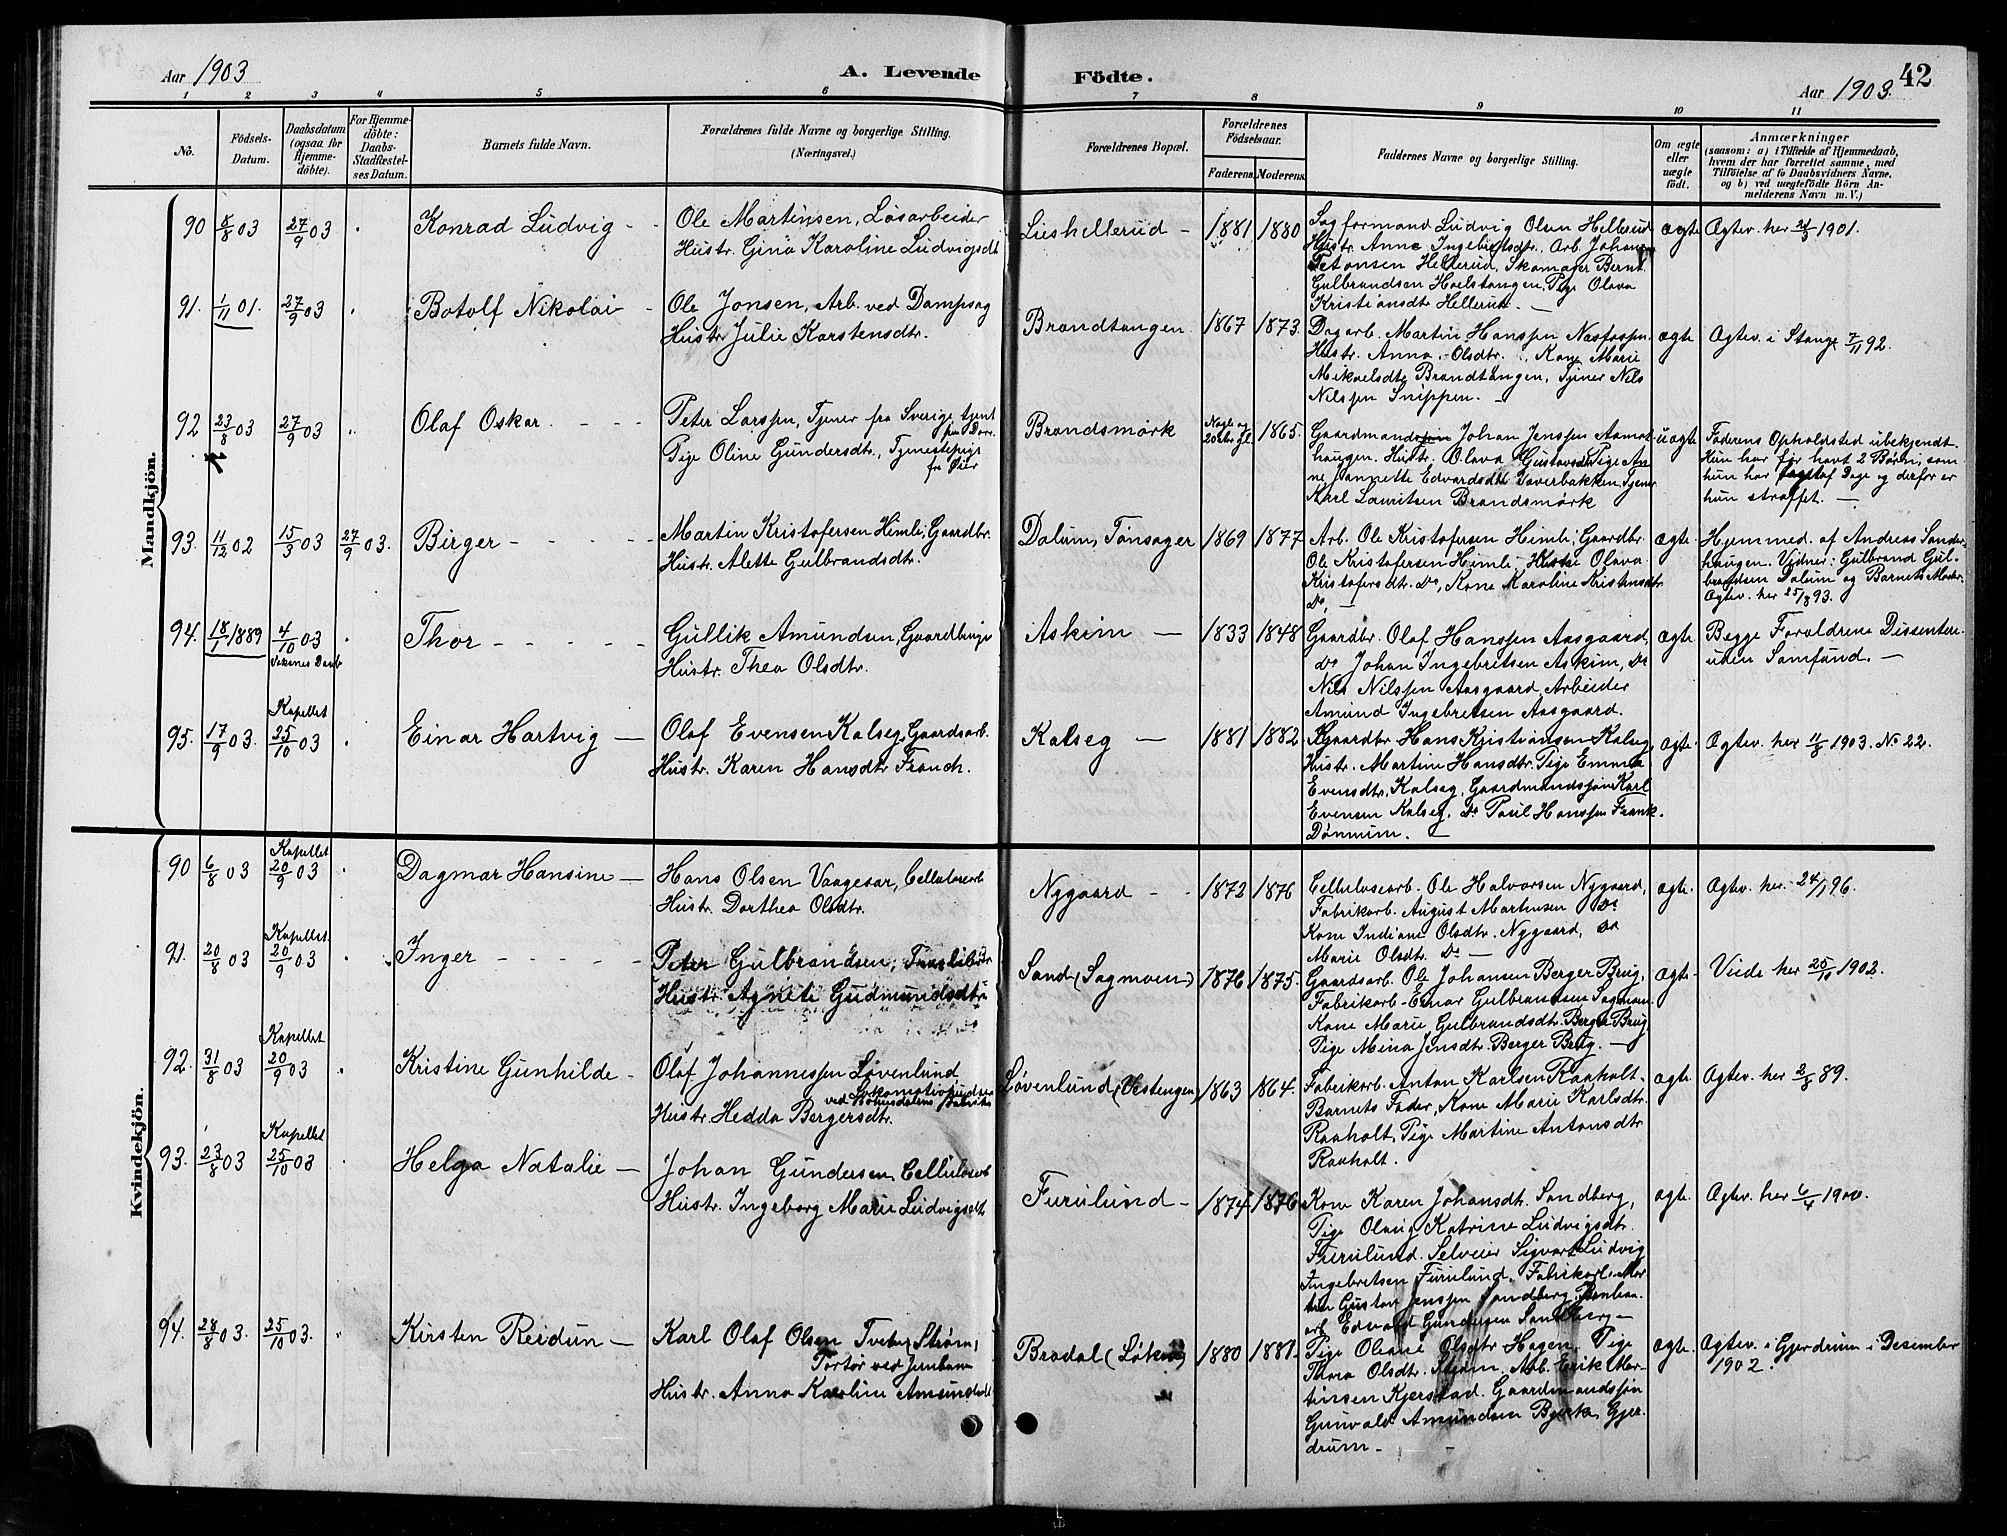 Aar 1903
A. Levende Födte.
42
Aar 1903
1 2 3 4 5 6 7 8 9 10 11
No.
Födsels-Datum.
Daabsdatum (ogsaa for Hjemmedöbte).
For Hjemmedöbte: Daabs-Stadfæstelses Datum.
Barnets fulde Navn.
Forældrenes fulde Navne og borgerlige Stilling. (Næringsvei.)
Forældrenes Bopæl.
Forældrenes Födselsaar.
Faderens. Moderens.
Faddernes Navne og borgerlige Stilling.
Om ægte eller uægte födt.
Anmærkninger
(saasom: a) i Tilfælde af Hjemmedaab, hvem der har forrettet samme, med Tilföielse af to Daabsvidners Navne, og b) ved uægtefödte Börn Anmelderens Navn m. V.)
Mandkjön.
90 8/8 03 27/9 03 Konrad Ludvig Ole Martinsen, Løsarbeider
Hustr. Gina Karoline Ludvigsdt
Lieshellerud 1881 1880
Sagformand Ludvig Olsen Hellerud
Hustr. Anne Ingebretsdtr, Arb. Johan
Hellerud, Skomager Bernt
Gulbrandsen Haelstangen, Pige Olava
Kristiansdt Hellerud.
ægte Ægtev. her 24/3 1901.
91. 1/11 01. 27/9 03 Botolf Nikolai Ole Jonsen, Arb. ved Dampsag
Hustr. Julie Karstensdtr.
Brandtangen 1867 1873.
Dagarb. Martin Hanssen
Hustr. Anna Olsdtr., Kone Marie
Mikaelsdtr Brandtangen, Tjener Nils
Nilssen Snippen.
ægte Ægtev. i Stange 7/11 92.
92 23/8 03 27/9 03 Olaf Oskar Peter Larssen, Tjener fra Sverige tjent
Pige Oline Gundersdtr., Tjenestepige
fra Øier
Brandsmørk 1865.
Gaardmand Johan Jenssen
haugen. Hustr. Olava Gustavsdtr Pige An-
ne Jannette Edvardsdt Taverbakken, Tjener
Karl Lauritsen Brandsmørk
uægte Faderens Opholdsted ubekjendt.
Hun har før havt 2 Børn, som
hun har Dage og derfor er
hun straffet.
93. 11/12 02 15/3 03 27/9 03. Birger Martin Kristofersen Himle, Gaardbr.
Hustr. Alette Gulbrandsdtr.
Dalum, Tønsager 1869 1877
Arb. Ole Kristofersen Himle, Gaardbr.
Ole Kristofersen Himle, Hustr. Olava
Kristofersdtr. Do, Kone Karoline Kristensdtr
Do.
ægte Hjemmed. af Andreas Sander-
haugen. Vidner: Gulbrand Gul-
brandsen Dalum og Barnets Moder.
Ægtev. her 25/8 93.
94. 18/1 1889 4/10 03 Voksnes Daab Thor Gullik Amundsen, Gaardbruger
Hustr. Thea Olsdtr.
Askim 1833 1848
Gaardbr. Olaf Hanssen Aasgaard,
Do Johan Ingebretsen Askim, Do
Nils Nilssen Aasgaard, Arbeider
Amund Ingebretsen Aasgaard.
ægte Begge Foreldrene Dissentere
uden Samfund.
95. 17/9 03. Kapellet 25/10 03 Einar Hartvig Olaf Evensen Kalseg, Gaardsarb.
Hustr. Karen Hansdtr Franck.
Kalseg 1881 1882
Gaardbr Hans Kristiansen Kalseg,
Hustr. Martine Hansdtr. Pige Emma
Evensdtr, Kalseg, Gaardmandssøn Karl
Evensen Kalseg, Do Paul Hanssen Frank.
Dønnum.
ægte. Ægtev. her 11/8 1903. No 22.
Kvindekjön.
90 6/8 03 Kapellet 20/9 03 Dagmar Hansine Hans Olsen Vaagesar, Cellulosearb
Hustr. Dorthea Olsdtr.
Nygaard 1872 1876
Cellulosearb. Ole Halvorsen Nygaard,
Fabrikarb. August Martinsen Do
Kone Indiane Olsdtr. Nygaard, Do
Marie Olsdtr. Do
ægte. Ægtev. her. 24/1 96.
91. 20/8 03 Kapellet 20/9 03 Inger Peter Gulbrandsen,
Hustr. Agnete Gudmundsdtr
Sand (Sagmoen) 1876 1875.
Gaardsarb. Ole Johansen Berger Brug,
Fabrikarb. Einar Gulbrandsen Sagmoen
Kone Marie Gulbrandsdt. Berger Brug
Pige Mina Jensdtr. Berger Brug.
ægte Viede her 25/10 1902.
92. 31/8 03 Kapellet 20/9 03 Kristine Gunhilde Olaf Johannessen Løvenlund
Lokomotivpudser
ved Fabrik
Hustr. Hedda Bergersdtr.
Løvenlund (Vestengen) 1863 1864.
Fabrikarb. Anton Karlsen Raaholt.
Barnets Fader, Kone Marie Karlsdtr.
Raaholt, Pige Martine Antonsdtr
Raaholt.
ægte. Ægtev. her 2/8 89.
93. 23/8 03 Kapellet 25/10 03 Helga Natalie Johan Gundersen, Cellulosearb
Hustr. Ingeborg Marie Ludvigsdt
Furulund 1874 1876
Kone Karen Johansdt. Sandberg,
Pige Olaug Katrine Ludvigsdtr.
Furulund. Selveier Sigvart Ludvig
Ingebretsen Furulund. Fabrikarb. Mar-
tin Gustav Jenssen Sandberg, Jernban.
arb. Edvald Gundersen Sandberg
ægte. Ægtev. her 6/4 1900.
94. 28/8 03. 25/10 03. Kirsten Reidun Karl Olaf Olsen Strøm,
Portør ved Jernbanen
Hustr. Anna Karline Amundsdt
Bradal (Løken) 1880 1881.
Pige Oleane Olsdtr Hagen, Pige
Thora Olsdtr. Strøm, Arb. Erik Mar-
tinsen Kjerstad. Gaardmandssøn
Gunvald Amundsen Bjerke, Gjer-
drum.
ægte. Ægtev. i Gjerdrum i Desember
1902.